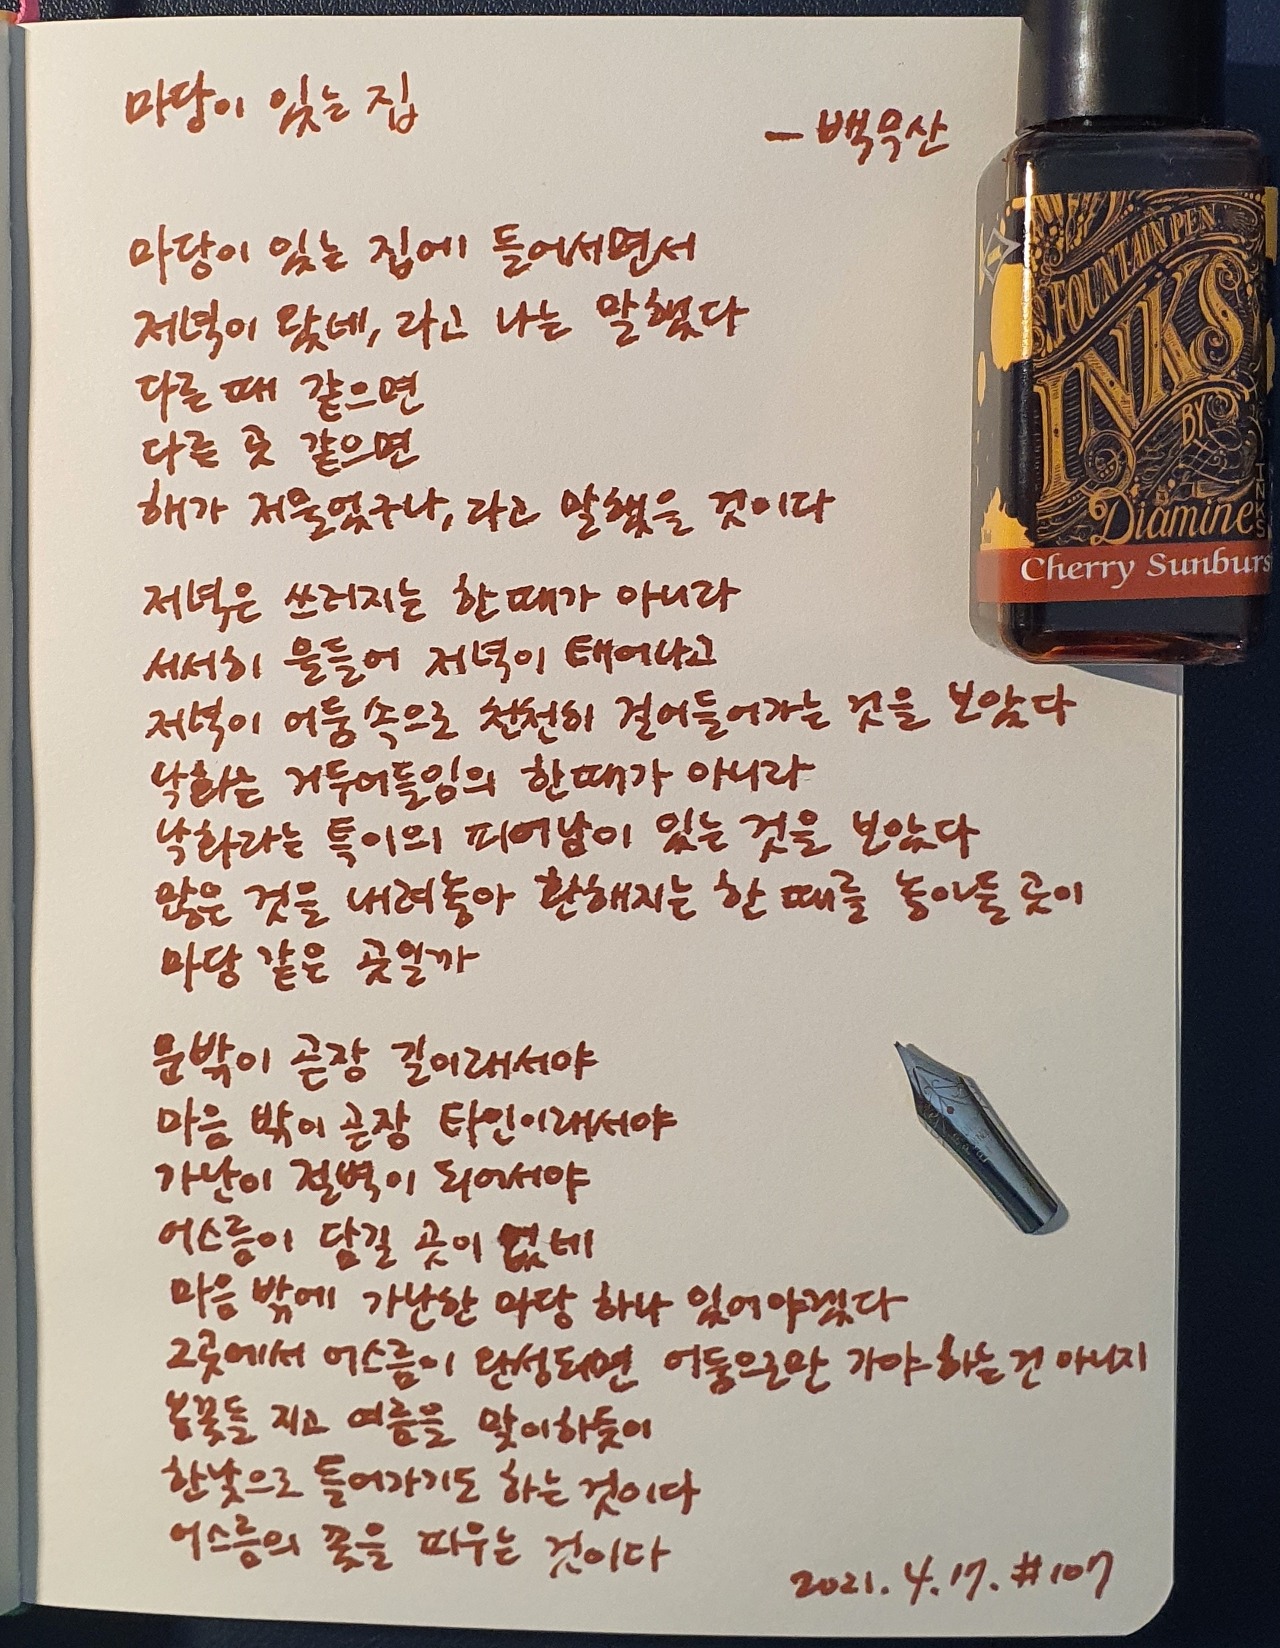 마당이 있는 집
- 백무산
마당이 있는 집에 들어서면서
저녁이 왔네, 라고 나는 말했다
다른 때 같으면
다른 곳 같으면
해가 저물었구나, 라고 말했을 것이다
저녁은 쓰러지는 한때가 아니라
서서히 물들어 저녁이 태어나고
저녁이 어둠속으로 천천히 걸어들어가는 것을 보았다
낙화는 거두어들임의 한때가 아니라
낙화라는 특이의 피어남이 있는 것을 보았다
많은 것을 내려놓아 환해지는 한 때를 놓아둘 곳이
마당 같은 곳일까
문밖이 곧장 길이래서야
마음 밖이 곧장 타인이래서야
가난이 절벽이 되어서야
어스름이 담길 곳이 없네
마음 밖에 가난한 마당 하나 있어야겠다
그곳에서 어스름이 완성되면 어둠으로만 가야 하는 건 아니지
봄꽃들 지고 여름을 맞이하듯이
한낮으로 들어가기도 하는 것이다
어스름의 꽃을 피우는 것이다
2021. 4. 17. #107
FOUNTAIN PEN
INKS
BY
Diamine
INKS
Cherry Sunburst